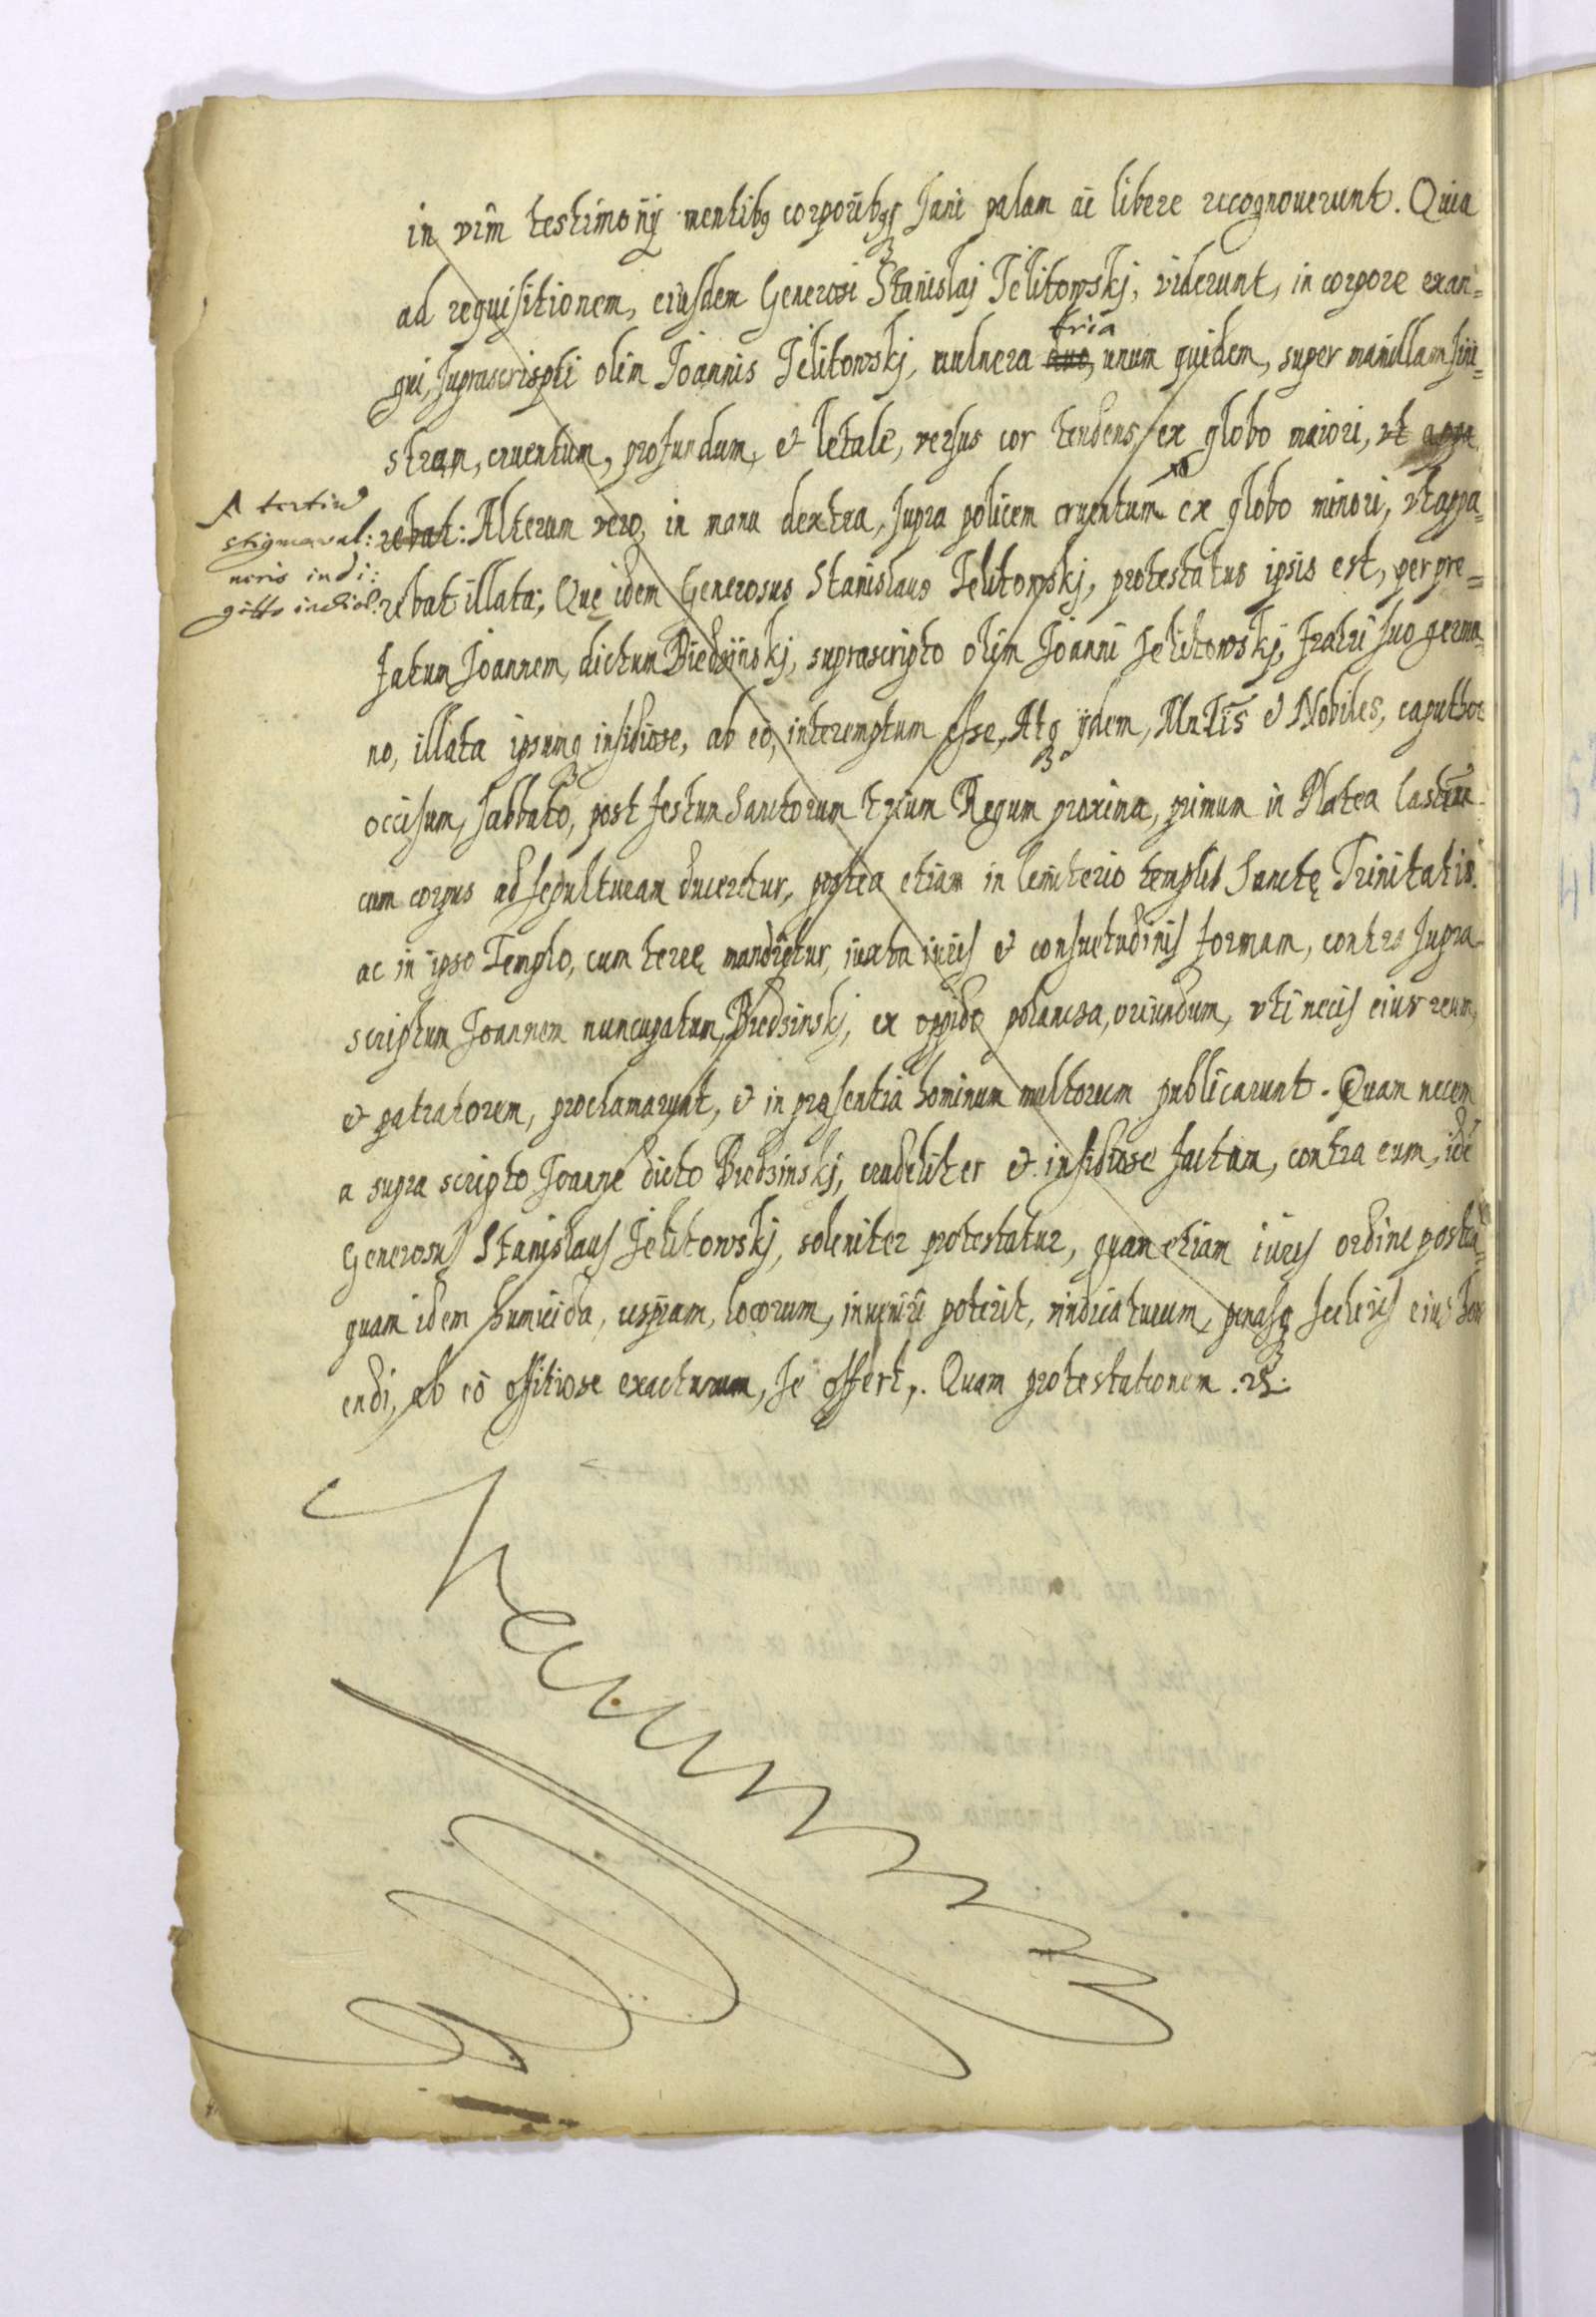 in vim testimonÿ mentibq corporibqz sani palam ac libere recognouerunt. Quia
ad requisitionem, eiusdem Generosi Stanislaj Jelitowskj, viderunt, in corpore exan=
gui, suprascripti olim Joannis Jelitowskj, vulnera duo, tria unum quidem, super mamillam sini=
stram, cruentum, profundum, et letale, versus cor tendens, ex globo maiori, vt appa
rebat: Alterum vero, in manu dextra, supra policem cruentum ex globo minori, vt appa=
A tertiu
stigma vul:
neris in di:
gitto indicis
rebat illata; Quę idem Generosus Stanislaus Jelitowskj, protestatus ipsis est, per pre=
fatum Joannem, dictum Biedzinskj, suprascripto olim Joanni Jelitowskj, fratri suo germa=
no, illata ipsumq insidiose, ab eo, interemptum esse, Atq ijdem, et Nobiles, caput hoc
occisum, sabbato, post festum Sanctorum trium Regum proxima, primum in Platea
cum corpus ad sepulturam duceretur, postea etiam in Cemiterio templi Sanctę Trinitatis.
ac in ipso Templo, cum terrę mandretur, iuxta iuris et consuetudinis formam, contra supra
scriptum Joannem nuncupatum, Biedzinskj, ex oppido polancza, oriundum, vti necis eius reum,
et patratorem, proclamarunt, et in presentia hominum multorum publicarunt. Quam necem
a supra scripto Joanne dicto Biedzinskj, crudeliter et insidiose factam, contra eum, ide
Generosus Stanislaus Jelitowskj, soleniter protestatur, quam etiam iuris ordine postea=
quam idem humicida, uspiam, locorum, inueniri poterit, vindicaturum, penasq sceleris eius
endi, ab eo offitiose exacturum, se offert,. Quam protestationem.